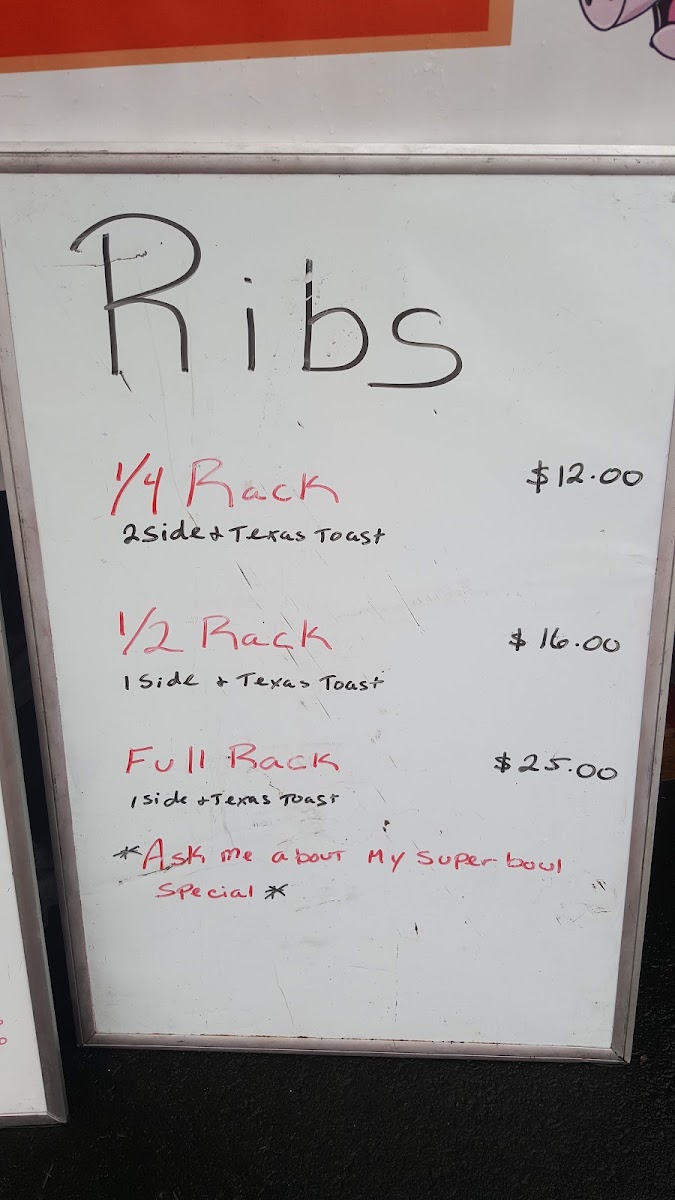 Ribs
1/4 Rack $12.00
2 side + Texas Toast
1/2 Rack $16.00
1 Side + Texas Toast
Full Rack $25.00
1 side + Texas Toast
*Ask me about My super bowl
special*